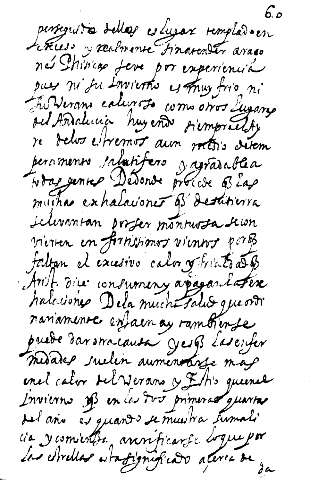 60
perseguido dellos es lugar templado en
exceso y realmente sin atender a razo
nes Phisicas se ve por experiencia
pues ni su invierno es muy frio, ni
su Verano caluroso como otros lugares
del Andalucia huyendo siempre el ay
re de los estremos a un medio de tem
peramento salutifero y agradable a
todas gentes De donde procede q̃ las
muchas exhalaciones q̃ de su tierra
se levantan por ser montuosa se con
vierten en fortissimos vientos porq̃
faltan el excesivo calor y frialdad q̃
Arist. dice consumen y apagan las ex
halaciones De la mucha salud que ordi
nariamente en Jaen ay tambien se
puede dar otra causa y es q̃ las enfer
medades suelen aumentarse mas
en el calor del Verano y Estio que en el
invierno q̃ en las dos primeras quartas
del año es quando se muestra su mali
cia y comienza a verificarse lo que por
las estrellas esta significado acerca de